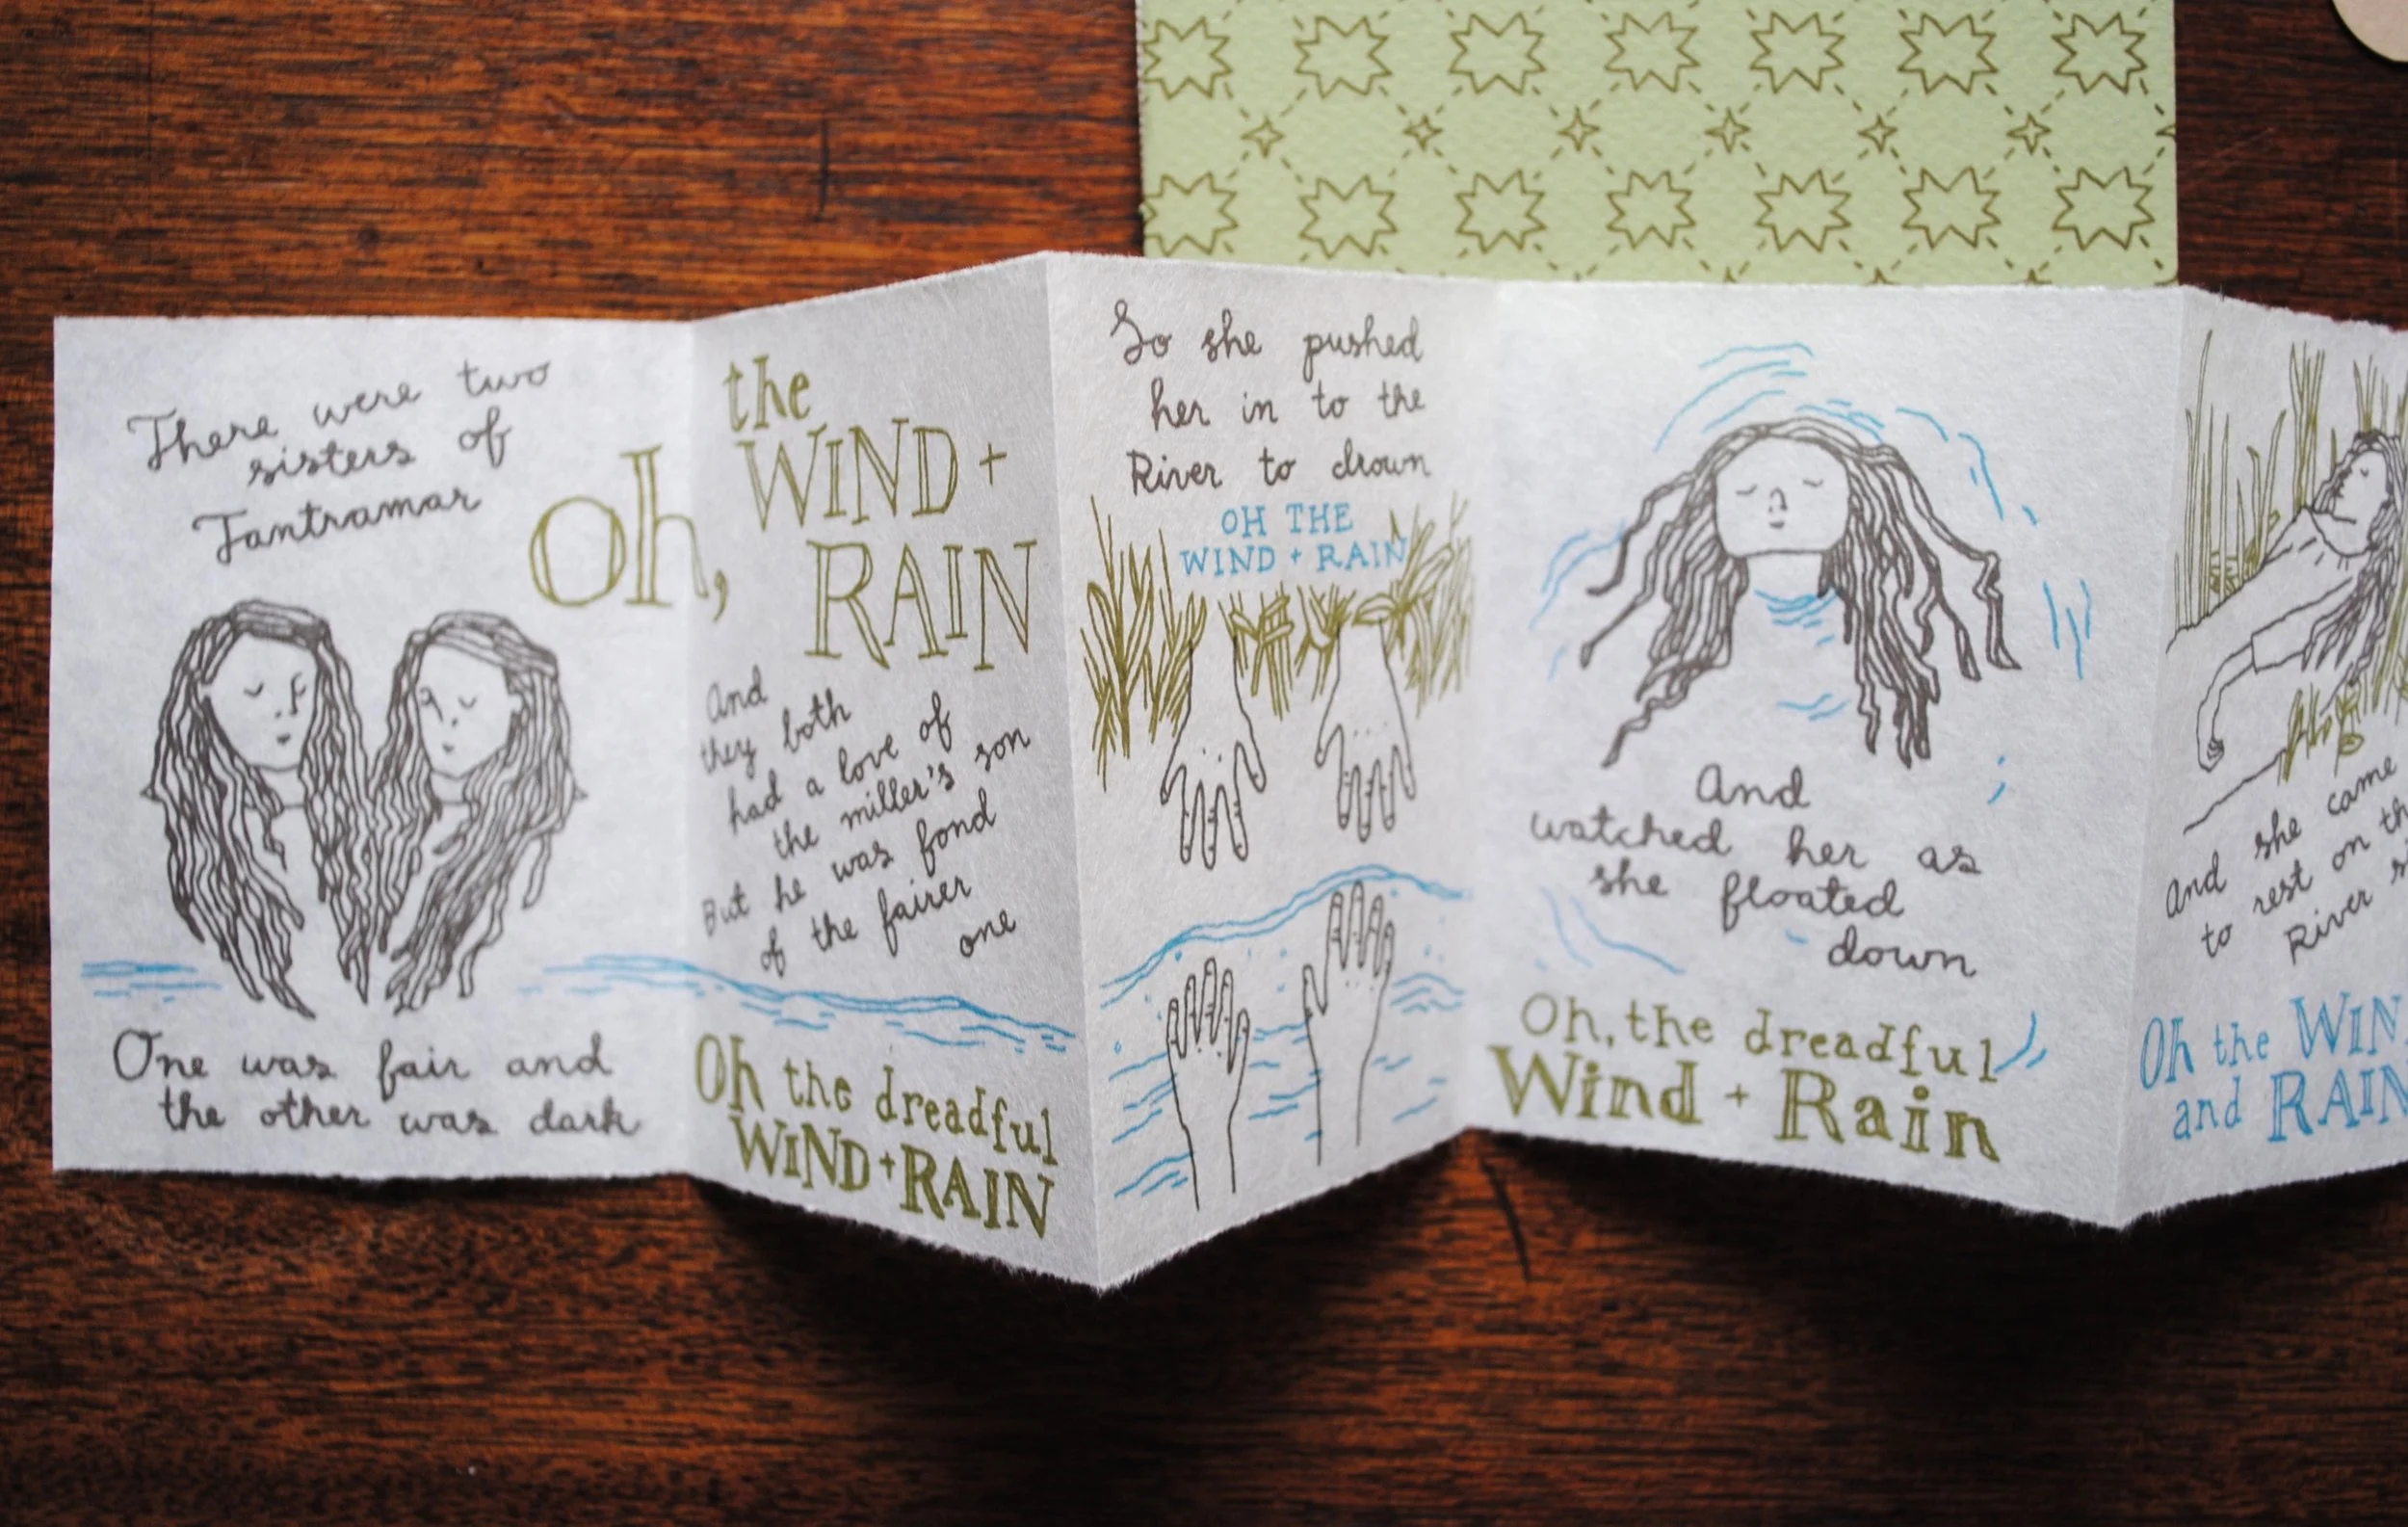 There were two
sisters of
Tantramar
oh,
One was fair and
the other was dark
the
WIND +
RAIN
And
they both
had a love of
the miller's son
But he was fond
of the fairer
one
Oh the dreadful
WIND + RAIN
So she pushed
her in to the
River to drown
OH THE
WIND + RAIN
And
watched her as
she floated
down
Oh, the dreadful
Wind + Rain
And she came
to rest on
River
Oh the
and RAIN